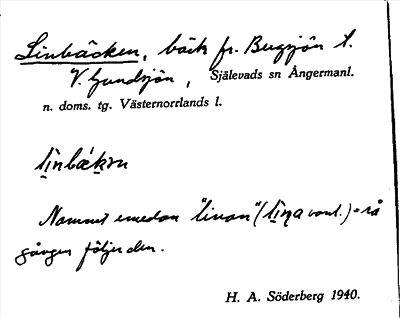 Linbäcken, bäck fr. Bugsjön t.
V. Gundsjön, Själevads sn Ångermanl.
n. doms. tg. Västernorrlands l.
Namnet emedan "linan" ( vanl.) = rå
gången följer den.
H. A. Söderberg 1940.